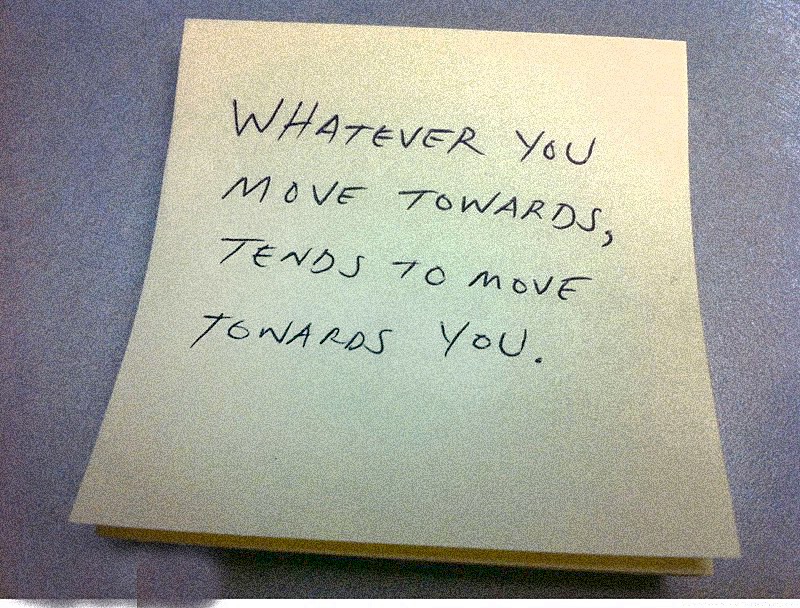 WHATEVER YOU
MOVE TOWARDS,
TENDS TO MOVE
TOWARDS YOU.